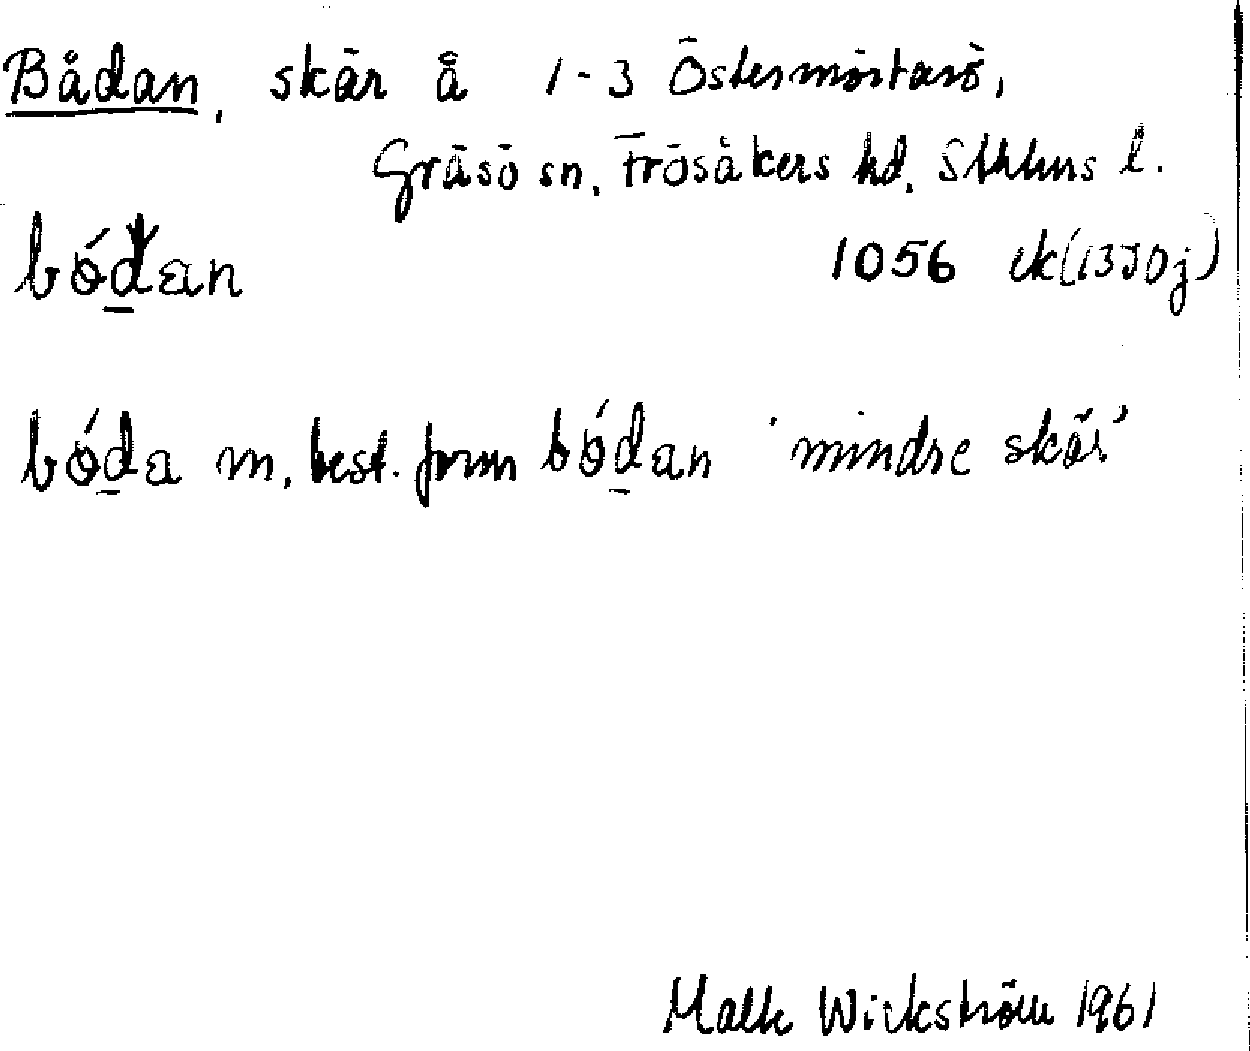 Bådan, skär å 1-3 Östermörtarö,
Gräsö sn, Frösåkers hd, Sthlms l.
bó̱dan 1056 ek(13J0j)
bó̱da m. best. form bó̱dan 'mindre skär'
Wickström 1961